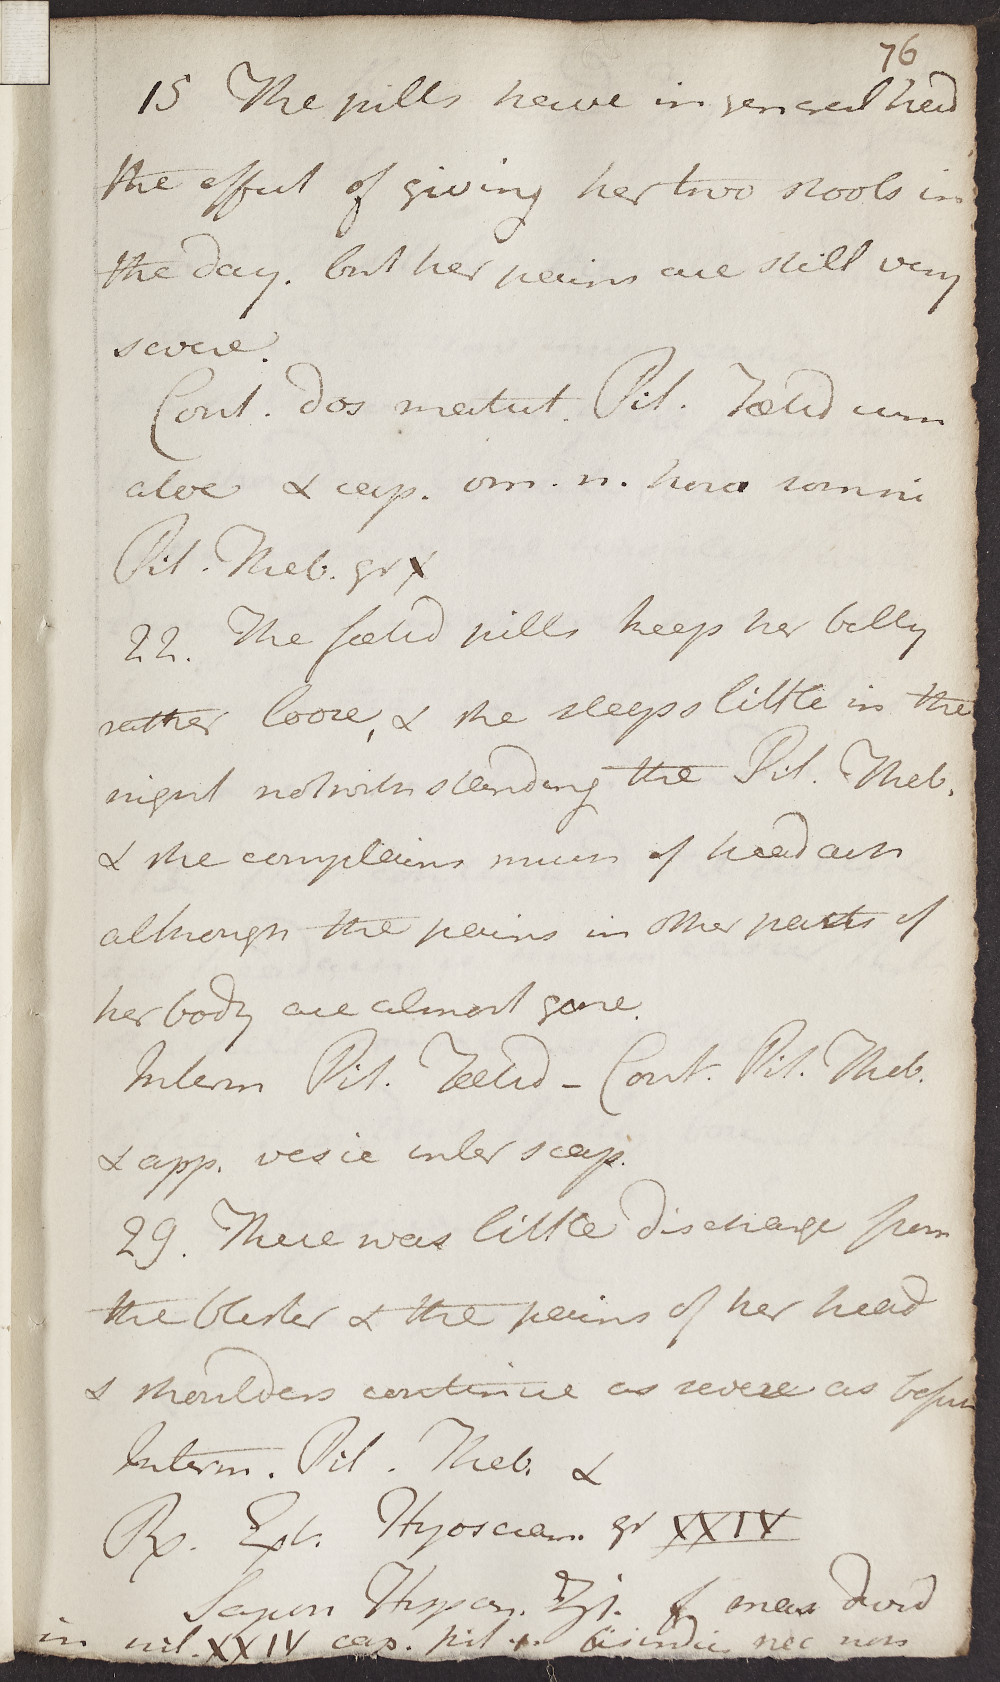 76
15 The pills have in general had
the effect of giving her two stools in
the day. but her pains are still very
severe.
Cont. dos matut. Pil. Fœtid cum
aloe & cap. om. n. hora somni
Pil. Theb. gr x
22. The fœtid pills keep her belly
rather loose, & she sleeps little in the
night notwithstanding the Pil. Theb.
& she complains much of headach
although the pains in other parts of
her body are almost gone.
Interm Pil. Fœtid – Cont. Pil. Theb.
& app. vesic inter scap.
29. There was little discharge from
the blister & the pains of her head
& shoulders continue as severe as before
Interm. Pil. Theb. &
Rx. Ext. Hyosciam. gr XXIV
Sapon Hispan. ʒj. f mass divid
in pil. XXIV cap. pil i. bis indie nec non